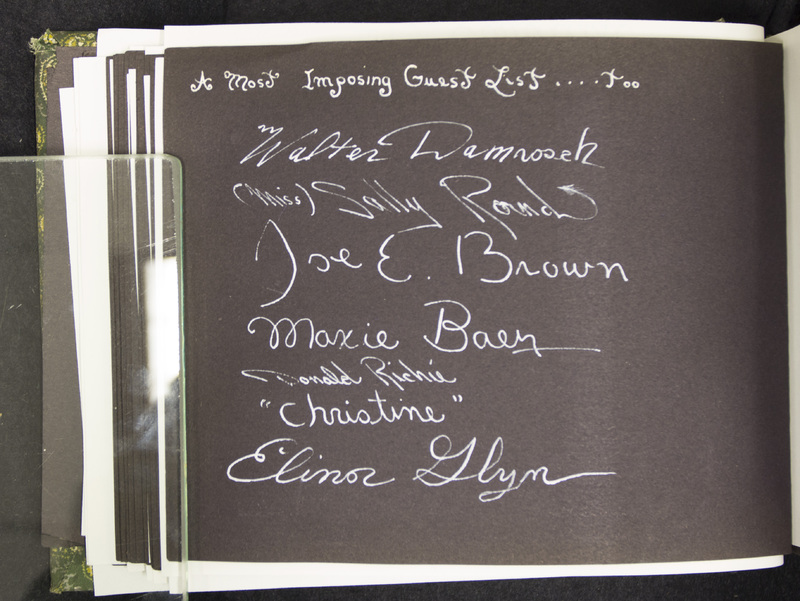 A Most Imposing Guest List ....too
Walter Damrosch
(Miss) Sally Rand
Joe E. Brown
Maxie Baer
Donald Richie
"Christine"
Elinor Glyn